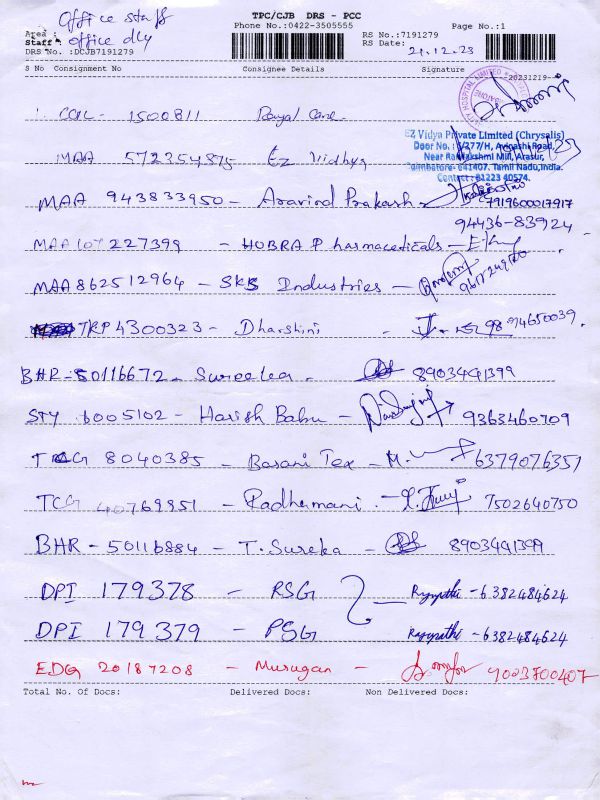 Office staff
TPC/CJB DRS - PCC
Phone No.:0422-3505555
Page No.:1
Area :
Staff : office dly
DRS No. :DCJB7191279
RS No.:7191279
RS Date: 21.12.23
S No Consignment No Consignee Details Signature
20231219
COL - 1500811 Royal Care
EZ Vidya Private Limited (Chrysalis)
Door No.: 5/277/H, Avinashi Road,
Near Rajalakshmi Mill, Arasur,
Coimbatore-641407. Tamil Nadu, India.
Contact: 81223 40574.
MAA 572354875 Ez Vidhya
MAA 943833950 - Aravind Prakash - 7919600017917
94436-83924
MAA 107227399 - HOBRA Pharmaceuticals -
MAA 862512964 - SKS Industries - 9617249160
TRP 4300323 - Dharshini - 9894650039
BHR - 50116672 - Sureeka - 8903491399
STY 6005102 - Harish Babu - 9363460709
TCG 8040385 - Barani Tex - M. 6379076351
TCG 40769851 - Radhamani - 7502640750
BHR - 50116884 - T. Sureka - 8903491399
DPI 179378 - RSG - 6382484624
DPI 179379 - PSG - 6382484624
EDG 20187208 - Murugan - 9003700407
Total No. Of Docs: Delivered Docs: Non Delivered Docs: